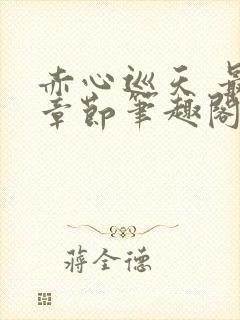 赤心巡天 最
章節筆趣閣
蔣全德